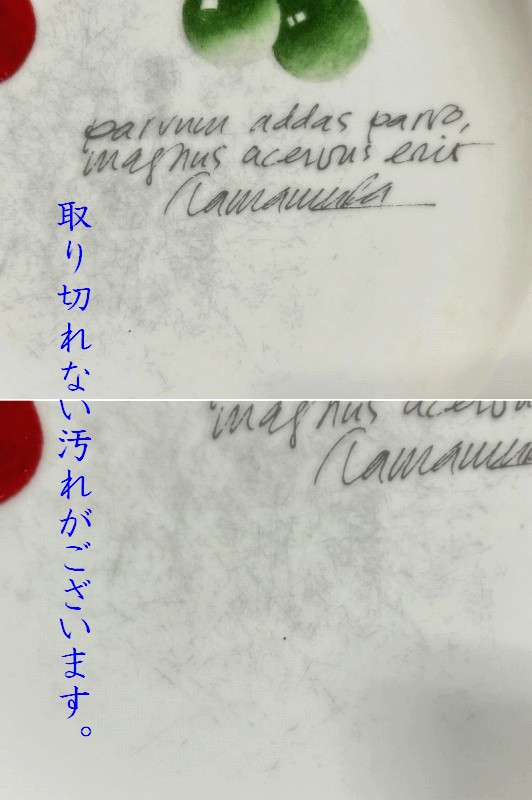 parvum addas parvo,
magnus acervus erit
取り切れない汚れがございます。
magnus acerv